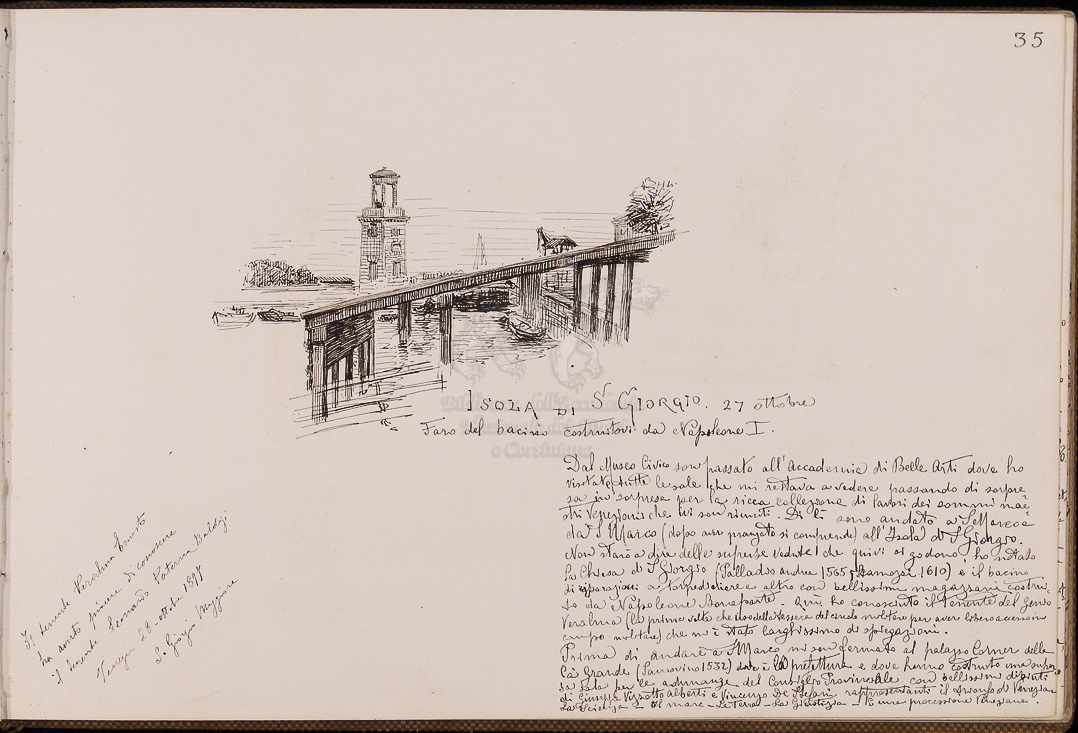 35
ISOLA DI S. GIORGIO. 27 ottobre
Faro del bacino costruitovi da Napoleone I.
Dal Museo Civico son passato all'Accademia di Belle Arti dove ho
visitate tutte le sale che mi restava a vedere passando di sorpre
sa in sorpresa per la ricca collezione di lavori dei sommi mae
stri Veneziani che ivi son riuniti. Di là sono andato a S. Marco e
da S. Marco (dopo aver pranzato si comprende) all'Isola di S. Giorgio.
Non starò a dire delle superbe vedute che quivi si godono, ho visitato
la Chiesa di S. Giorgio (Palladio andrea 1565, Scamozzi 1610) e il bacino
di riparazioni a torpediniere e altro con bellissimi magazzini costrui
to da Napoleone Bonaparte. Qui ho conosciuto il Tenente del genio
(la prima volta che uso della tessera del circolo militare per aver libero accesso in
campo militare) che mi è stato larghissimo di spiegazioni.
Prima di andare a S. Marco mi son fermato al palazzo Corner della
Cà Grande (Sansovino 1532) dove è la prefettura e dove hanno costruito una super
ba sala per le adunanze del Consiglio Provinciale con bellissimi dipinti
di Giuseppe Vizzotto Alberti e Vincenzo De Stefani rappresentanti il trionfo di Venezia
La Scienza Il mare - La Terra - La Giustizia - E una processione Veneziana.
Il tenente Ernesto
ha avuto piacere di conoscere
il tenente Gennaro Paternò
Venezia 28 ottobre 1897
S. Giorgio Maggiore